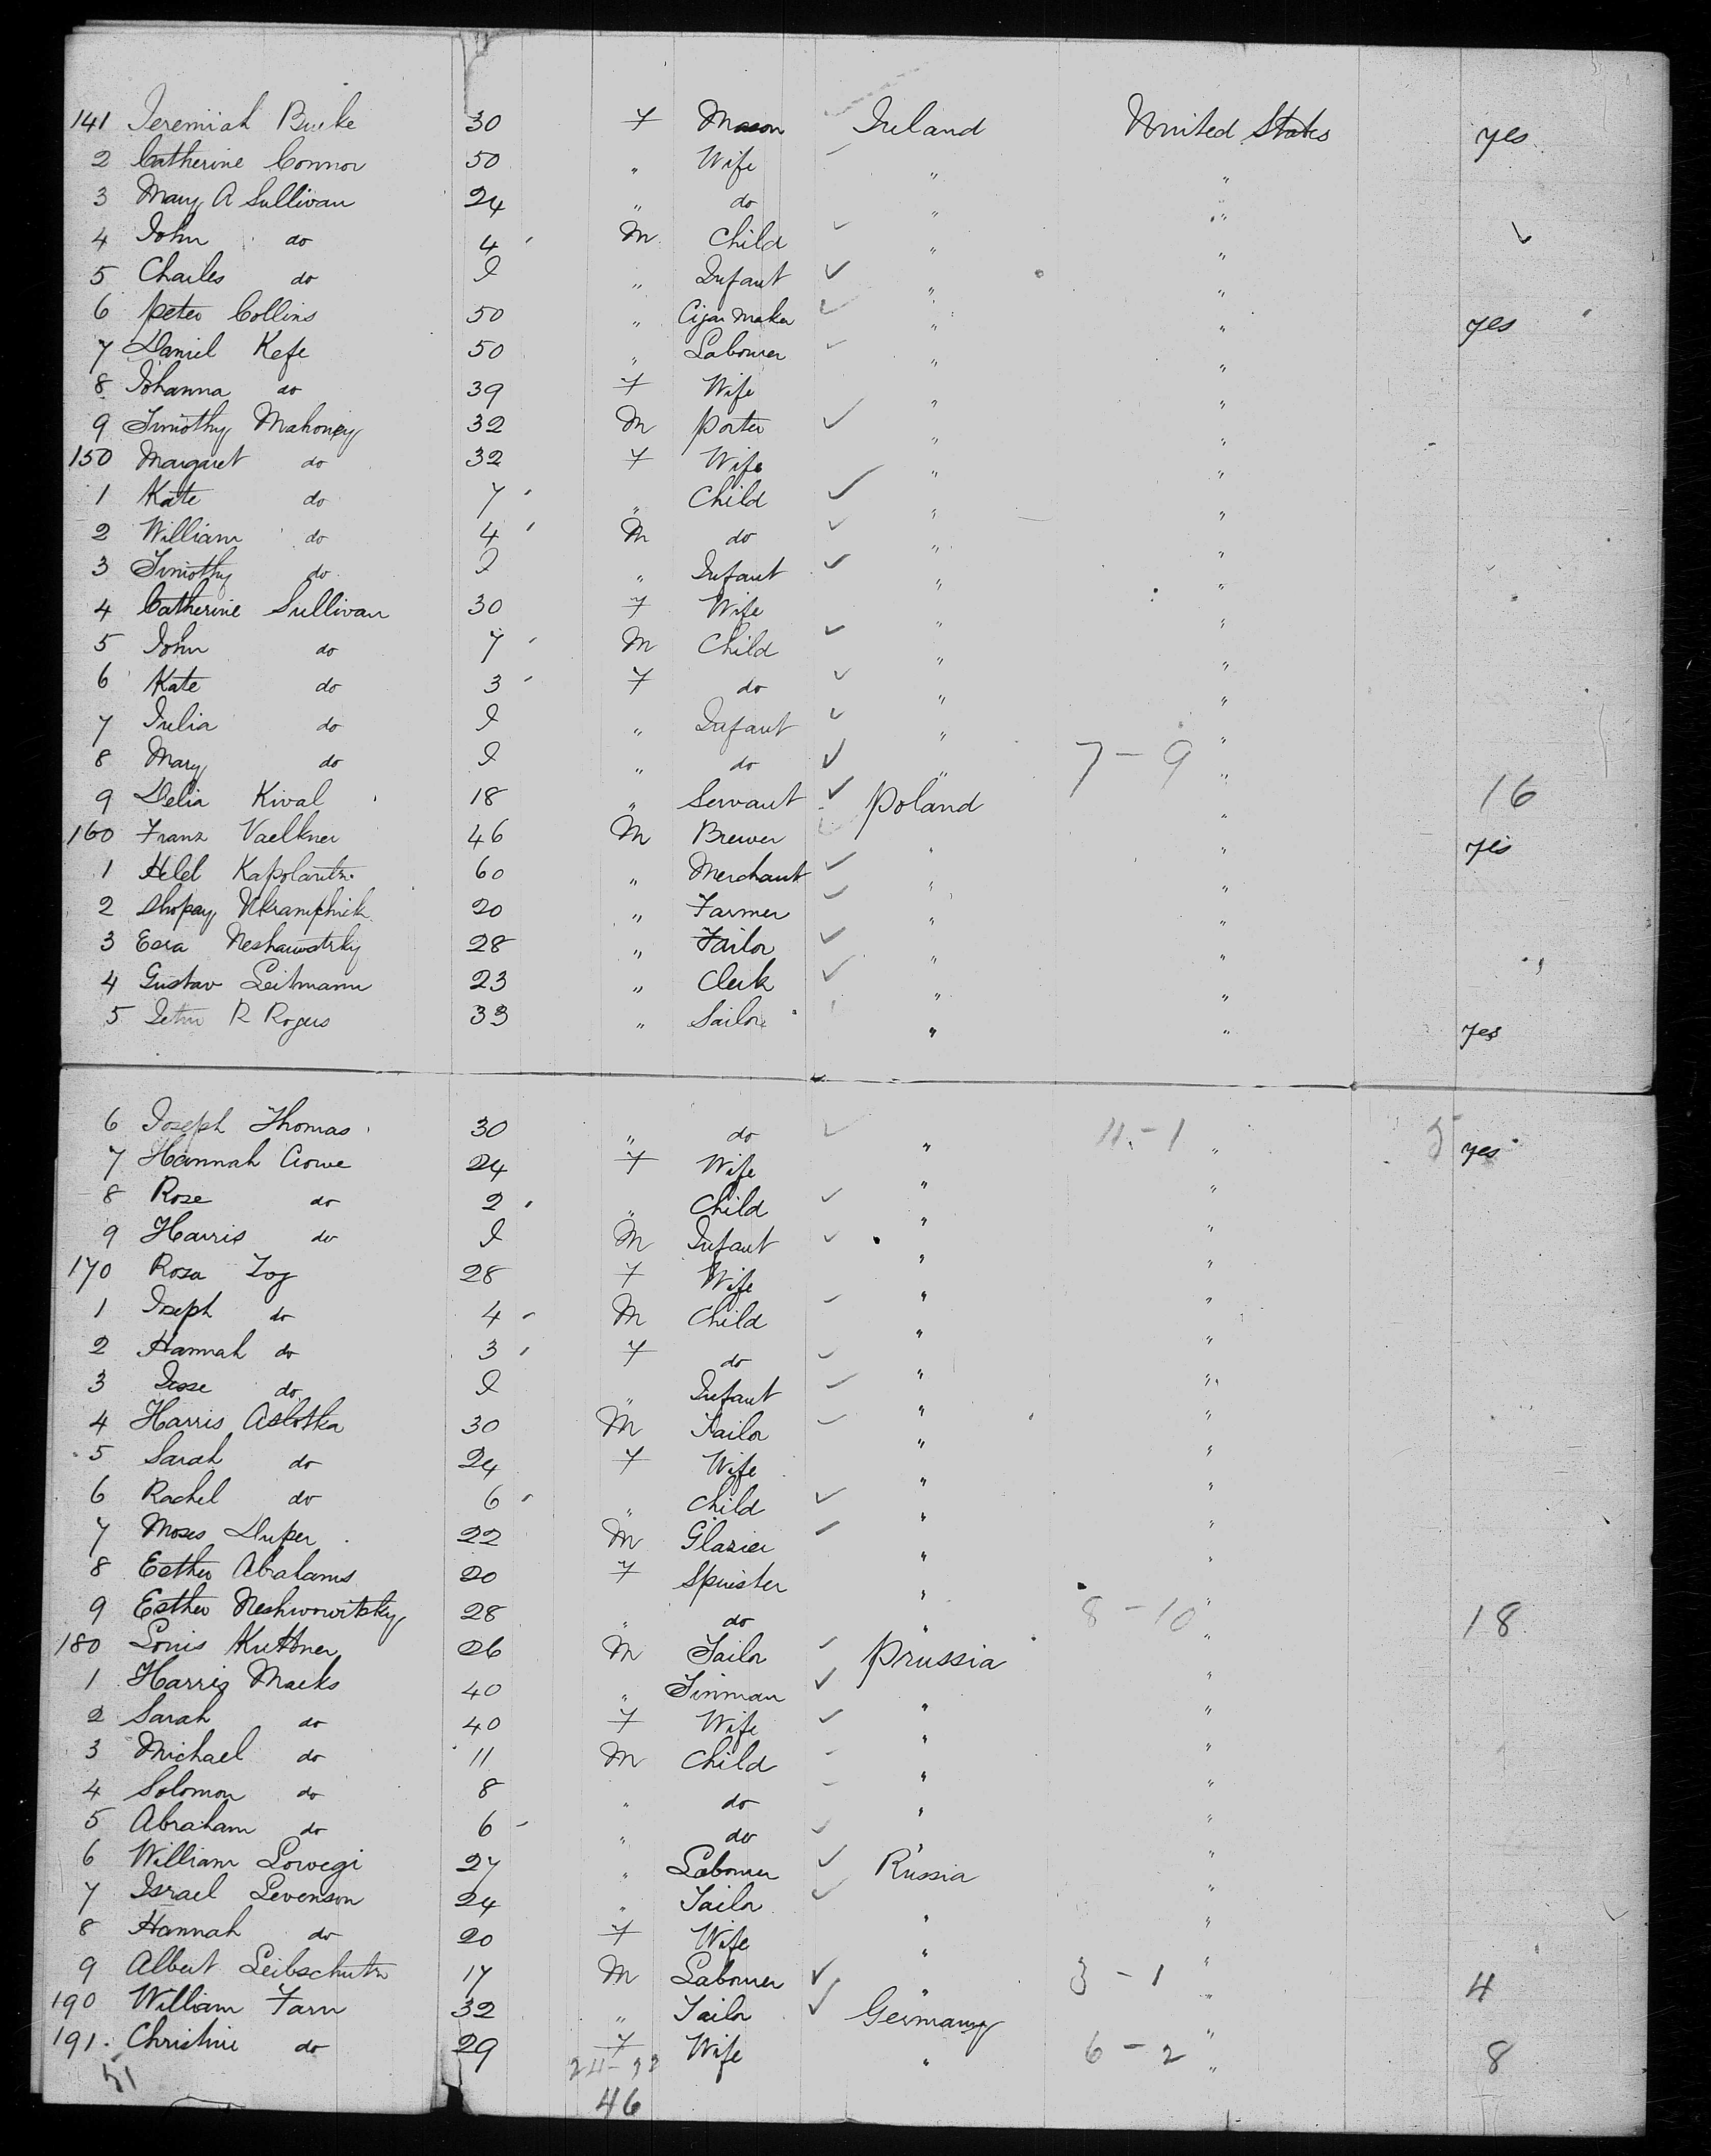 141 Jeremiah Burke 30 F Mason Ireland United States yes
2 Catherine Connor 50 " Wife " "
3 Mary A Sullivan 24 " do " "
4 John do 4 M Child " "
5 Charles do I " Infant " "
6 Peter Collins 50 " Cigar Maker " " yes
7 Daniel Kefe 50 " Labourer " "
8 Johanna do 39 F Wife " "
9 Timothy Mahoney 32 M Porter " "
150 Margaret do 32 F Wife " "
1 Kate do 7 " Child " "
2 William do 4 M do " "
3 Timothy do I " Infant " "
4 Catherine Sullivan 30 F Wife " "
5 John do 7 M Child " "
6 Kate do 3 F do " "
7 Julia do I " Infant " "
8 Mary do I " do " 7-9 "
9 Delia Kival 18 " Servant Poland " 16
160 Franz Vaelkner 46 M Brewer " " yes
1 Held 60 " Merchant " "
2 20 " Farmer " "
3 Esra 28 " Tailor " "
4 Gustav Leitmann 23 " Clerk " "
5 R Rogers 33 " Sailor " " yes
6 Joseph Thomas 30 " do " 11-1 " yes
7 Hannah Crowe 24 F Wife " "
8 Rose do 2 " Child " "
9 Harris do I M Infant " "
170 Rosa Zog 28 F Wife " "
1 Joseph do 4 M Child " "
2 Hannah do 3 F do " "
3 Jesse do I " Infant " "
4 Harris Aslotka 30 M Tailor " "
5 Sarah do 24 F Wife " "
6 Rachel do 6 " Child " "
7 Moses Duper 22 M Glazier " "
8 Esther Abrahams 20 F Spinster " "
9 Esther Neshwowitsky 28 " do " 8-10 " 18
180 Louis Kuttner 26 M Tailor Prussia "
1 Harris Marks 40 " Tinman " "
2 Sarah do 40 F Wife " "
3 Michael do 11 M Child " "
4 Solomon do 8 " do " "
5 Abraham do 6 " do " "
6 William Lowegi 27 " Labourer Russia "
7 Israel Levenson 24 " Tailor " "
8 Hannah do 20 F Wife " "
9 Albert Leibschutz 17 M Labourer " 3-1 " 4
190 William Farn 32 " Tailor Germany "
191. Christine do 29 F Wife " 6-2 " 8
51
46